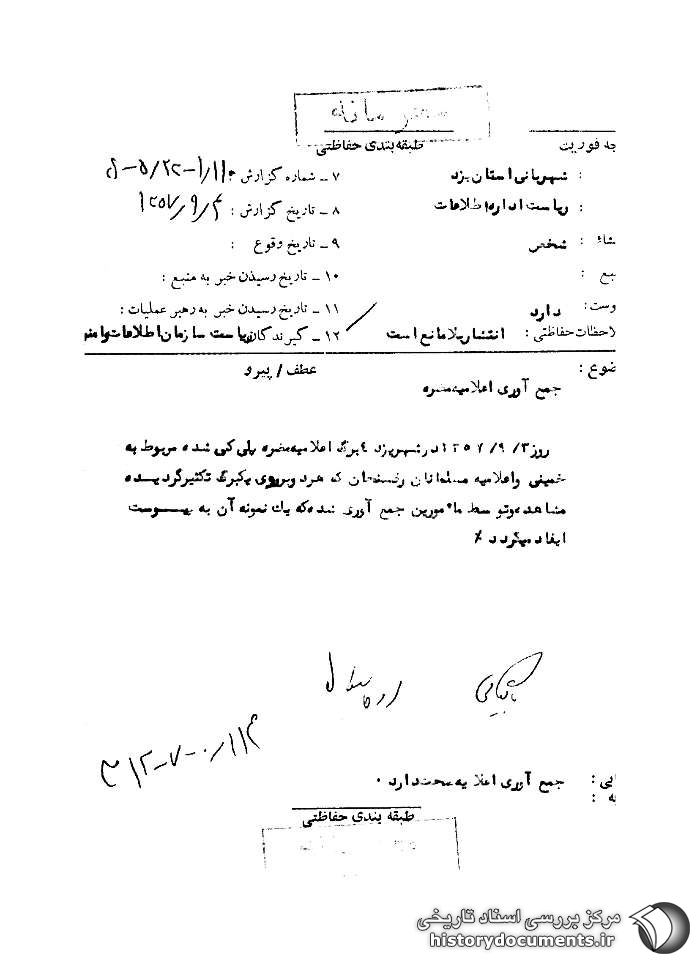 محرمانه
طبقه‌بندی حفاظتی
جه فوریت
: شهربانی استان یزد
۷ ـ شماره گزارش
: ریاست اداره اطلاعات
۸ ـ تاریخ گزارش : ۱۳۵۷/۹/۴
شاء : شخص
۹ ـ تاریخ وقوع :
بع :
۱۰ ـ تاریخ رسیدن خبر به منبع :
وست : دارد
۱۱ ـ تاریخ رسیدن خبر به رهبر عملیات :
لاحظات حفاظتی : انتشار بلامانع است
۱۲ ـ گیرندگان ریاست سازمان اطلاعات و امنی
ضوع :
عطف / پیرو
جمع آوری اعلامیه مضره
روز ۱۳۵۷/۹/۳ در شهر یزد ۴ برگ اعلامیه مضره پلی کپی شده مربوط به
خمینی و اعلامیه مسلمانان رفسنجان که هر دو بر روی یکبرگ تکثیر گردیده
مشاهده و توسط مأمورین جمع آوری شده که یك نمونه آن به پیوست
ایفاد میگردد
ابی : جمع آوری اعلامیه صحت دارد .
به :
طبقه بندی حفاظتی
مرکز بررسی اسناد تاریخی
historydocuments.ir